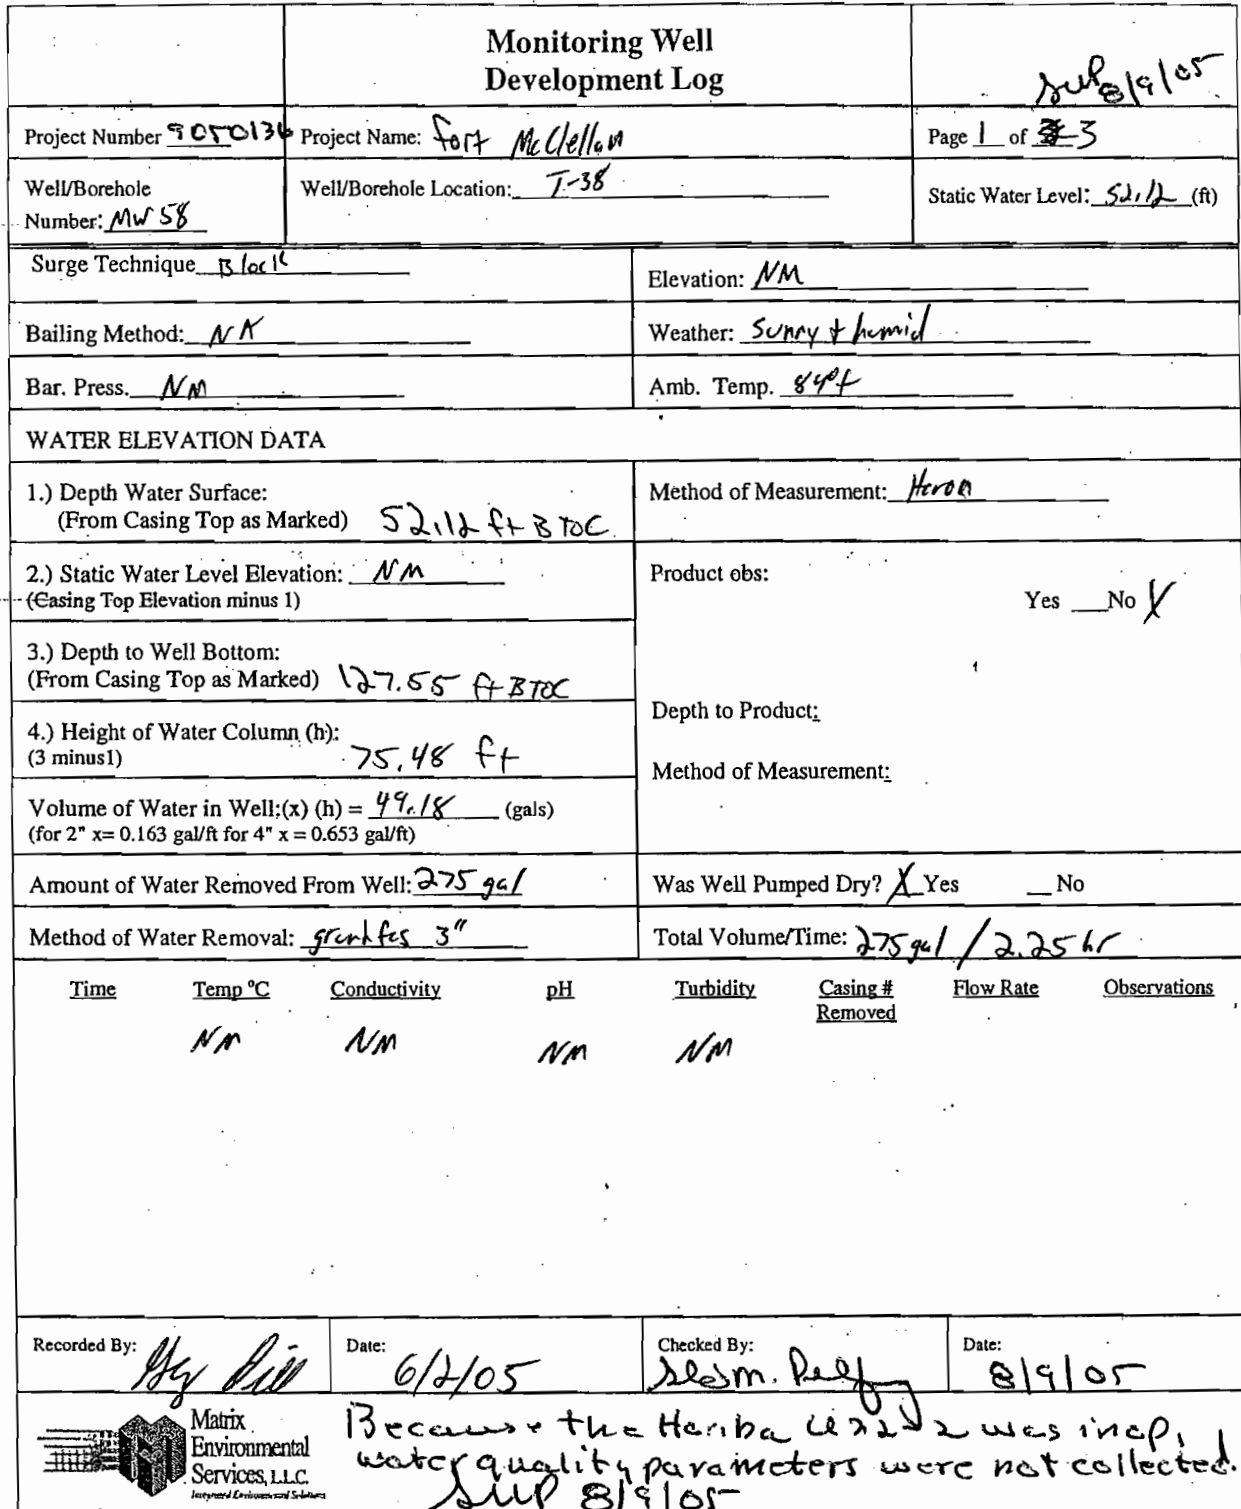 Monitoring Well
Development Log
SMP 8/9/05
Project Number 9050136 Project Name: Fort McClellan Page 1 of 3
Well/Borehole Number: MW 58
Well/Borehole Location: T-38
Static Water Level: 52.12 (ft)
Surge Technique Block
Elevation: NM
Bailing Method: NA
Weather: Sunny + humid
Bar. Press. NM
Amb. Temp. 84°f
WATER ELEVATION DATA
1.) Depth Water Surface:
(From Casing Top as Marked) 52.12 ft BTOC
Method of Measurement: Heron
2.) Static Water Level Elevation: NM
(Casing Top Elevation minus 1)
Product obs:
Yes __No X
3.) Depth to Well Bottom:
(From Casing Top as Marked) 127.55 ft BTOC
Depth to Product:
4.) Height of Water Column (h):
(3 minus1) 75.48 ft
Method of Measurement:
Volume of Water in Well;(x) (h) = 49.18 (gals)
(for 2" x= 0.163 gal/ft for 4" x = 0.653 gal/ft)
Amount of Water Removed From Well: 275 gal
Was Well Pumped Dry? X Yes __No
Method of Water Removal: grundfos 3"
Total Volume/Time: 275 gal / 2.25 hr
Time Temp °C Conductivity pH Turbidity Casing # Removed Flow Rate Observations
NM NM NM NM
Recorded By:
Date: 6/2/05
Checked By:
Date: 8/9/05
Matrix
Environmental
Services, L.L.C.
Integrated Environmental Solutions
Because the Horiba U22 was inop,
water quality parameters were not collected.
SMP 8/9/05